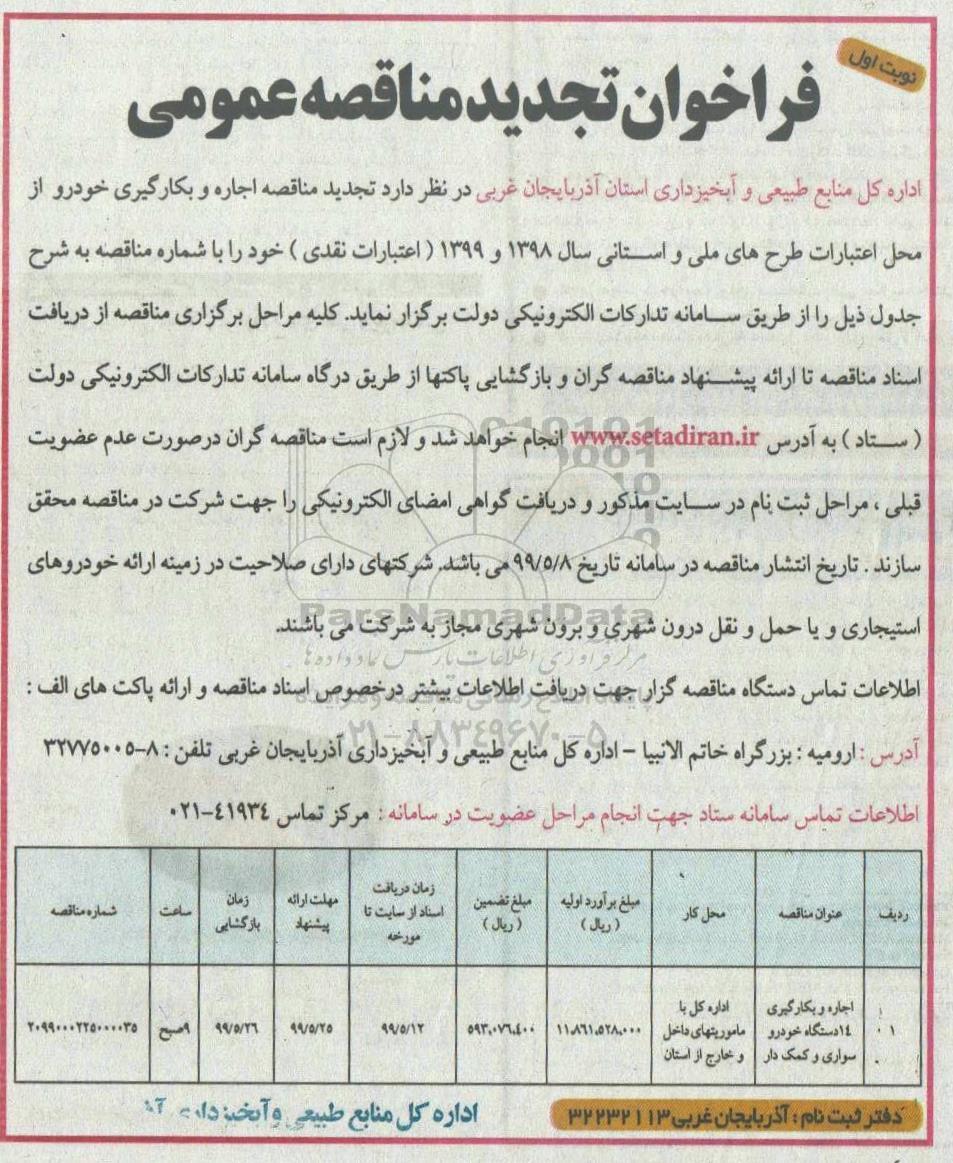 نوبت اول
فراخوان تجدید مناقصه عمومی
اداره کل منابع طبیعی و آبخیزداری استان آذربایجان غربی در نظر دارد تجدید مناقصه اجاره و بکارگیری خودرو از
محل اعتبارات طرح های ملی و استانی سال ۱۳۹۸ و ۱۳۹۹ ( اعتبارات نقدی ) خود را با شماره مناقصه به شرح
جدول ذیل را از طریق سامانه تدارکات الکترونیکی دولت برگزار نماید. کلیه مراحل برگزاری مناقصه از دریافت
اسناد مناقصه تا ارائه پیشنهاد مناقصه گران و بازگشایی پاکتها از طریق درگاه سامانه تدارکات الکترونیکی دولت
( ستاد ) به آدرس www.setadiran.ir انجام خواهد شد و لازم است مناقصه گران درصورت عدم عضویت
قبلی ، مراحل ثبت نام در سایت مذکور و دریافت گواهی امضای الکترونیکی را جهت شرکت در مناقصه محقق
سازند . تاریخ انتشار مناقصه در سامانه تاریخ ۹۹/۵/۸ می باشد. شرکتهای دارای صلاحیت در زمینه ارائه خودروهای
استیجاری و یا حمل و نقل درون شهری و برون شهری مجاز به شرکت می باشند.
اطلاعات تماس دستگاه مناقصه گزار جهت دریافت اطلاعات بیشتر درخصوص اسناد مناقصه و ارائه پاکت های الف :
آدرس : ارومیه : بزرگراه خاتم الانبیا – اداره کل منابع طبیعی و آبخیزداری آذربایجان غربی تلفن : ۸-۳۲۷۷۵۰۰۵
اطلاعات تماس سامانه ستاد جهت انجام مراحل عضویت در سامانه : مرکز تماس ۴۱۹۳۴-۰۲۱
ParsNamadData
مرکز فرآوری اطلاعات پارس نماد داده ها
۰۲۱-۸۸۳۴۹۶۷۰-۵
ردیف عنوان مناقصه محل کار مبلغ برآورد اولیه ( ریال ) مبلغ تضمین ( ریال ) زمان دریافت اسناد از سایت تا مورخه مهلت ارائه پیشنهاد زمان بازگشایی ساعت شماره مناقصه
۱ اجاره و بکارگیری ۱۴دستگاه خودرو سواری و کمک دار اداره کل با ماموریتهای داخل و خارج از استان ۱۱،۸۶۱،۵۲۸،۰۰۰ ۵۹۳،۰۷۶،۴۰۰ ۹۹/۵/۱۲ ۹۹/۵/۲۵ ۹۹/۵/۲۶ ۹صبح ۲۰۹۹۰۰۰۲۲۵۰۰۰۰۳۵
دفتر ثبت نام : آذربایجان غربی ۳۲۲۳۲۱۱۳
اداره کل منابع طبیعی و آبخیزداری